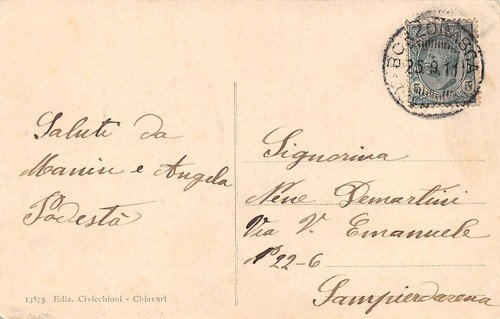 BORZONASCA
25.9.11
5
Saluti da
Manin e Angela
Podestà
Signorina
Nene Demartini
Via V. Emanuele
N° 22-6
Sampierdarena
15875 Ediz. Civicchioni - Chiavari